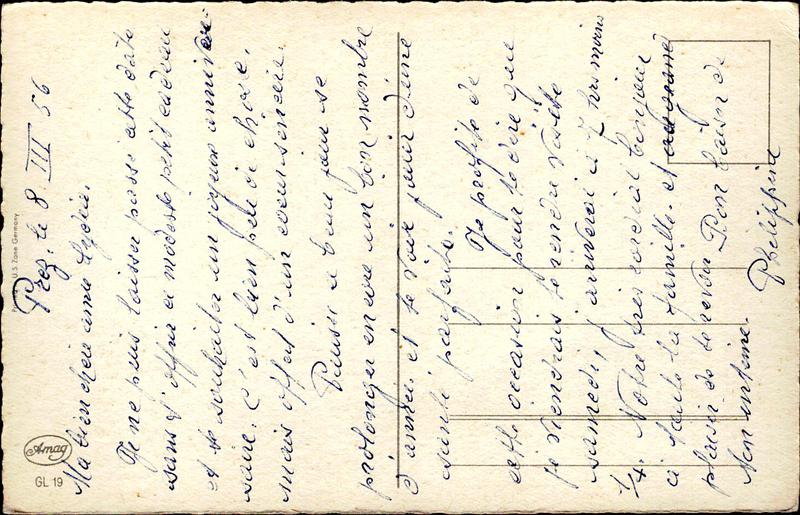 Prez, le 8 III 56
Ma bien chère amie Lydie.
Je ne puis laisser passé cette date
sans t'offrir ce modeste petit cadeau
et te souhaiter un joyeux anniver-
saire. C'est bien peu de chose,
mais offert d'un coeur sincère.
Puisse ce beau jour se
prolonger encore un bon nombre
d'année et te voir jouir d'une
santé parfaite.
Je profite de
cette occasion pour te dire que
je viendrais te rendre visite
samedi, arriverai à 7 hrs moins
1/4. Notre très cordial bonjour
à toute la famille. et
plaisir de te revoir Bon baiser de
Mon intime. Philippine
U.S. Zone Germany
Amag
GL 19